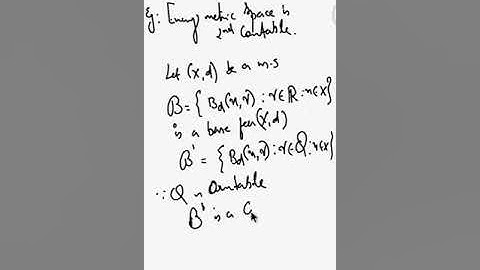 Eg: Every metric space is
2nd Countable.
Let (X,d) be a m.s
B = { B_d(x,r) : r∈ℝ : x∈X}
is a base for (X,d)
B' = { B_d(x,r) : r∈ℚ : x∈X}
∵ ℚ is Countable
B' is a C